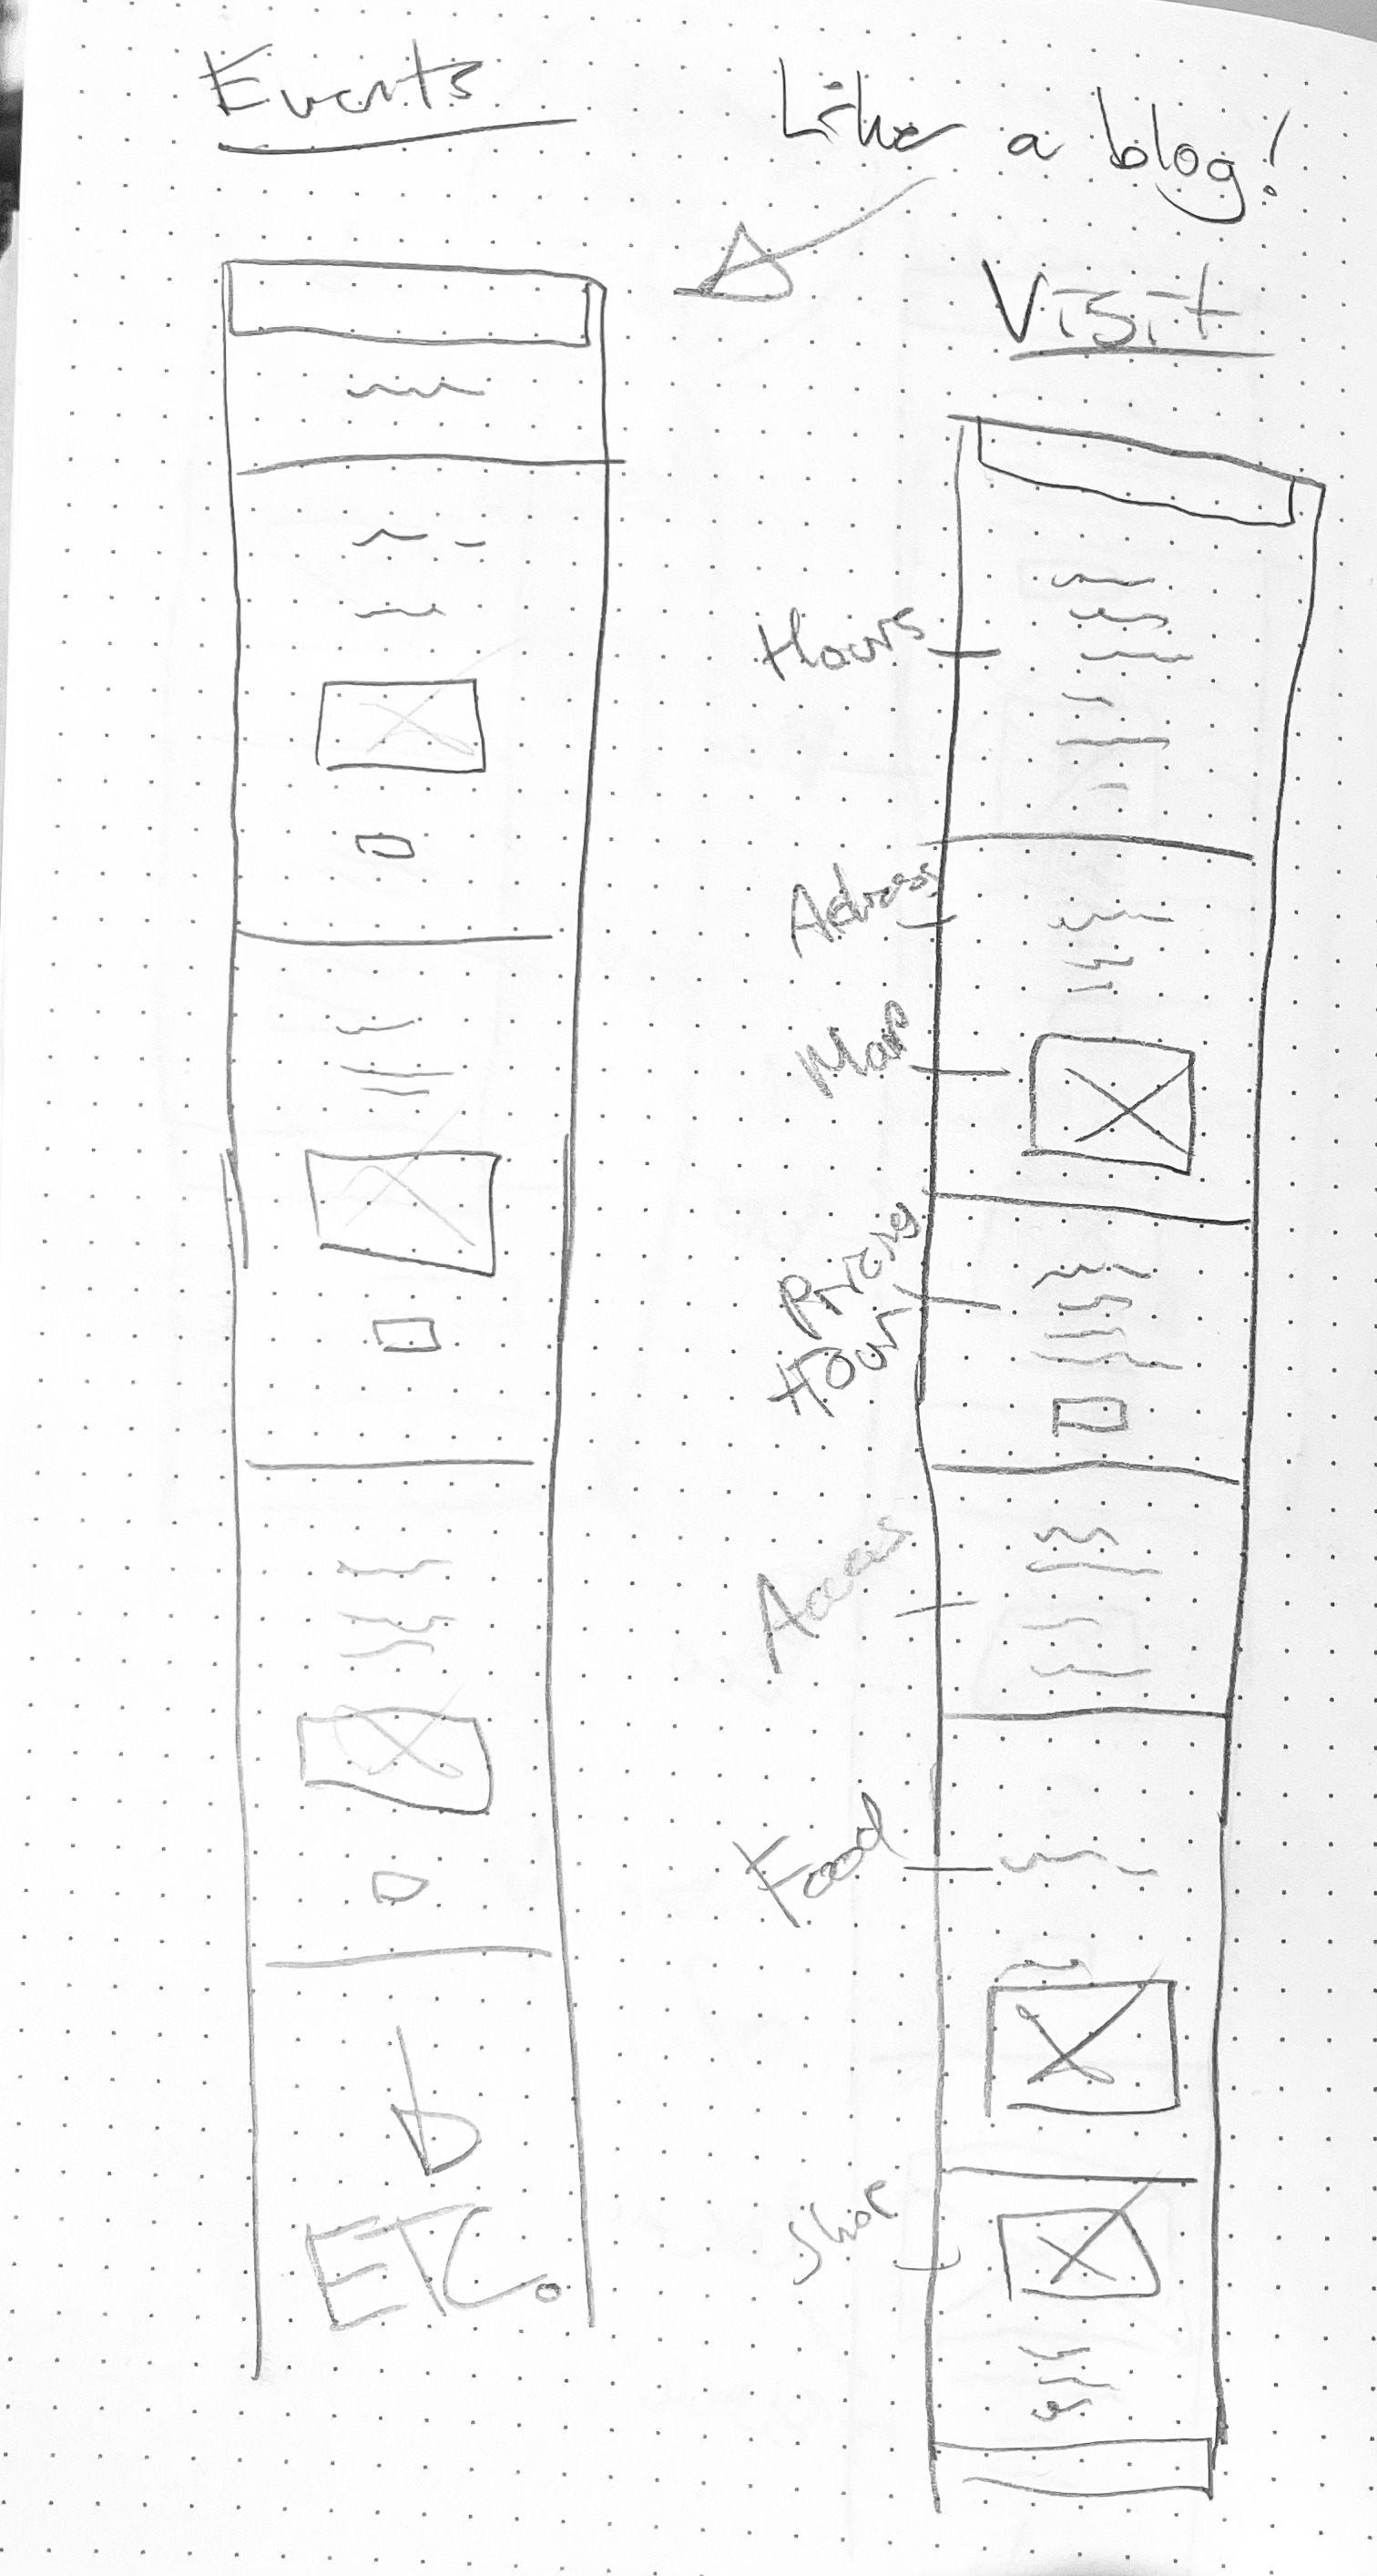 Events
Like a blog!
Visit
Hours
Address
Map
Pricing
Hour
Access
Food
Shop
ETC.